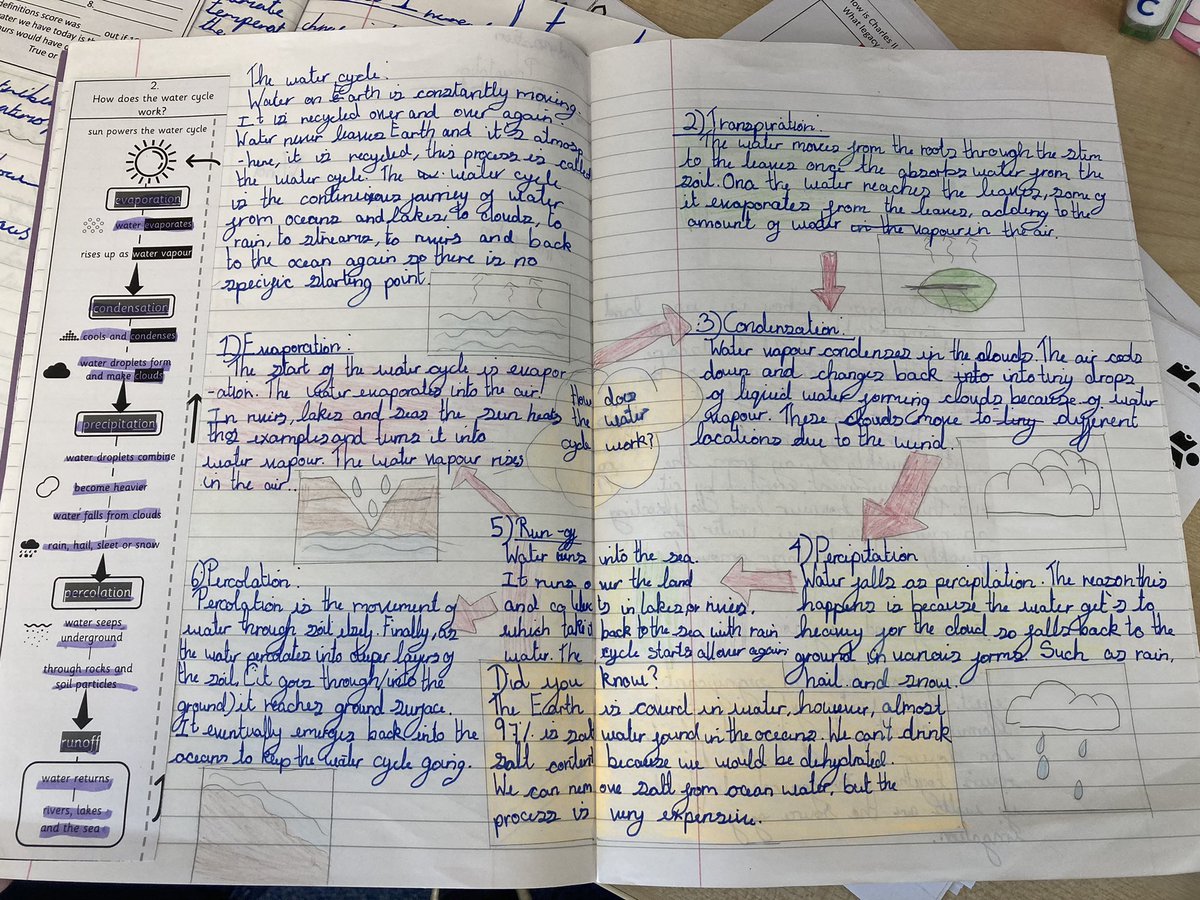 8.
definitions score was ____ out if 1
water we have today is th
ours would have
True or
temperat
the
How is Charles II
What legacy
C
2.
How does the water cycle
work?
sun powers the water cycle
evaporation
water evaporates
rises up as water vapour
condensation
cools and condenses
water droplets form
and make clouds
precipitation
water droplets combine
become heavier
water falls from clouds
rain, hail, sleet or snow
percolation
water seeps
underground
through rocks and
soil particles
runoff
water returns
rivers, lakes
and the sea
The water cycle.
Water on Earth is constantly moving.
It is recycled over and over again.
Water never leaves Earth and it's almosp
-here, it is recycled, this process is called
the water cycle. The water cycle
is the continuous journey of water
from oceans and lakes, to clouds, to
rain, to streams, to rivers and back
to the ocean again so there is no
specific starting point.
1) Evaporation.
The start of the water cycle is evapor
-ation. The water evaporates into the air.
In rivers, lakes and seas the sun heats
thes examples and turns it into
water vapour. The water vapour rises
in the air..
How does
the water
cycle work?
2) Transpiration.
The water moves from the roots through the stem
to the leaves once the absorbs water from the
soil. Once the water reaches the leaves, some of
it evaporates from the leaves, adding to the
amount of water in the vapour in the air.
3) Condensation.
Water vapour condenses in the clouds. The air cools
down and changes back into into tiny drops
of liquid water forming clouds because of water
vapour. These clouds move to ting different
locations due to the wind.
4) Percipitation
Water falls as percipitation. The reason this
happens is because the water get's to
heavy for the cloud so falls back to the
ground in various forms. Such as rain,
hail and snow.
5) Run-off
Water runs into the sea.
It runs over the land
and collects in lakes or rivers,
which take it back to the sea with rain
water. The cycle starts all over again
6) Percolation.
Percolation is the movement of
water through soil itself. Finally, as
the water percolates into deeper layers of
the soil (it goes through/into the
ground) it reaches ground surface.
It eventually emerges back into the
oceans to keep the water cycle going.
Did you know?
The Earth is coverd in water, however, almost
97% is salt water found in the oceans. We can't drink
salt content because we would be dehydrated.
We can remove salt from ocean water, but the
process is very expensive.